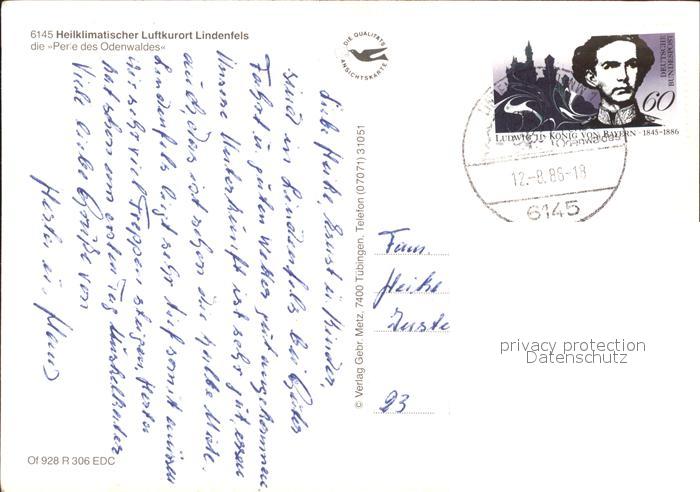 6145 Heilklimatischer Luftkurort Lindenfels
die »Perle des Odenwaldes«
DIE QUALITÄTS
ANSICHTSKARTE
DEUTSCHE
BUNDESPOST
60
LUDWIG II. KÖNIG VON BAYERN · 1845-1886
Odenwaldes
12.-8.86-18
6145
Liebe Heike, Ernst u. Kinder,
sind in Lindenfels bei guter
Fahrt u. guten Wetter gut angekommen.
Unsere Unterkunft ist sehr gut, essen
auch, das ist schon die halbe Miete.
Lindenfels liegt sehr tief somit müssen
wir sehr viel Treppen steigen, Herta
hat schon am ersten Tag Muskelkater
Viele liebe Grüße von
Herta u. Hans
© Verlag Gebr. Metz, 7400 Tübingen, Telefon (07071) 31051
Fam.
Heike
23
privacy protection
Datenschutz
Of 928 R 306 EDC